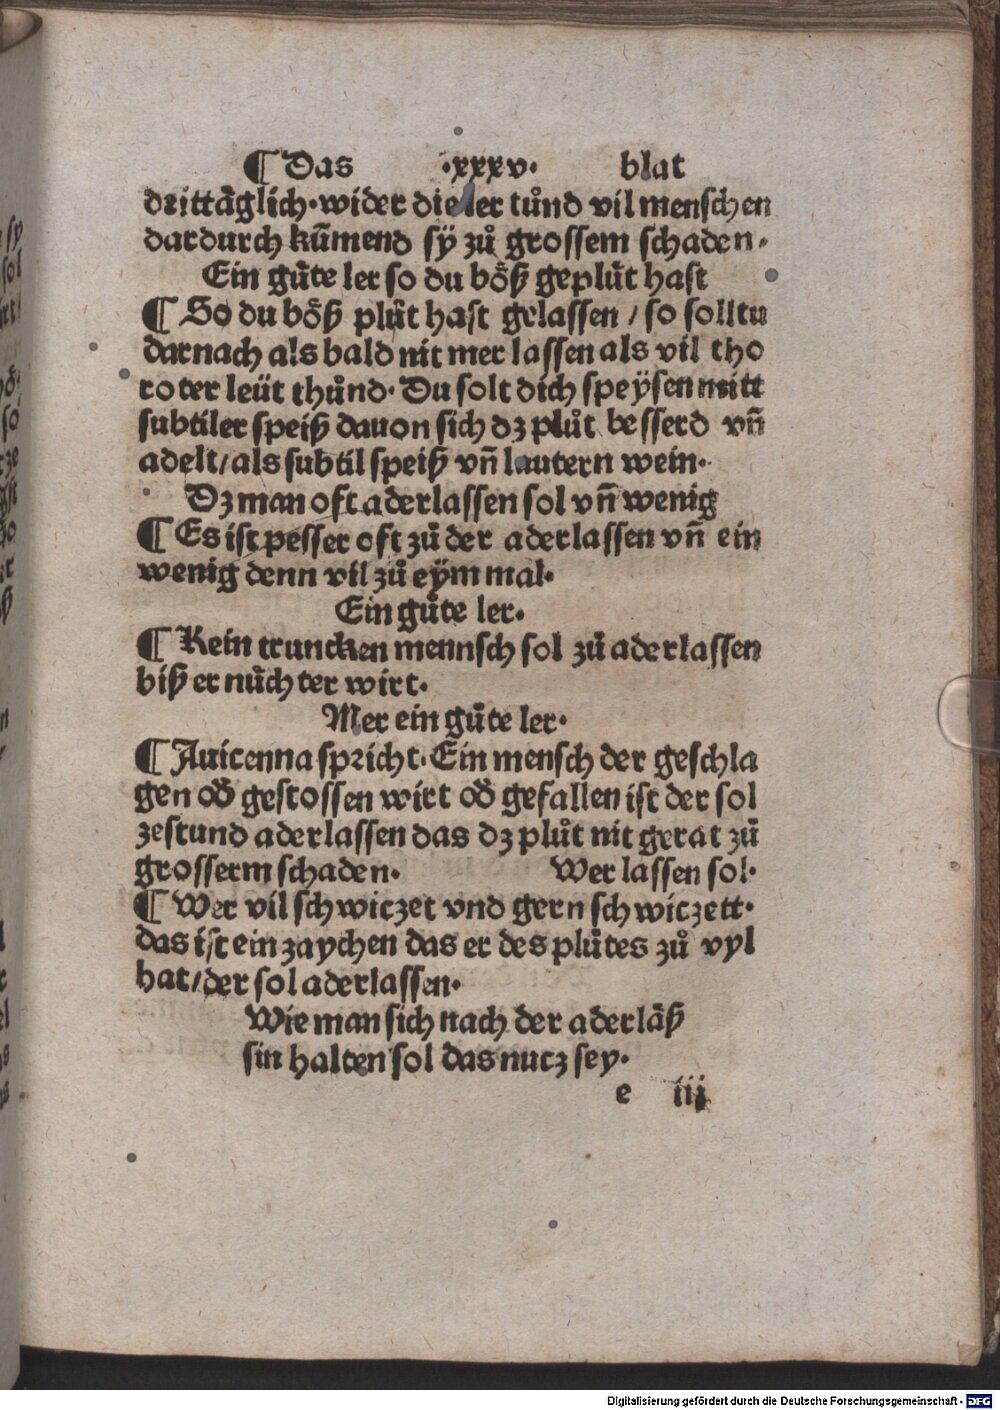 ¶ Das ·xxxv· blat
drittåglich·wider die ler tůnd vil menschen
dardurch kūmend sÿ zů grossem schaden·
Ein gůte ler so du bőß geplůt hast
¶ So du bőß plůt hast gelassen / so solltu
darnach als bald nit mer lassen als vil tho
roter leüt thůnd· Du solt dich speÿsen mitt
subtiler speiß dauon sich dz plůt besserd vn̄
adelt/als subtil speiß vn̄ lautern wein·
Dz man oft aderlassen sol vn̄ wenig
¶ Es ist pesser oft zů der aderlassen vn̄ ein
wenig denn vil zů eÿm mal·
Ein gůte ler·
¶ Kein truncken mennsch sol zů aderlassen
biß er nůchter wirt·
Mer ein gůte ler·
¶ Auicenna spricht· Ein mensch der geschla
gen od̄ gestossen wirt od̄ gefallen ist der sol
zestund aderlassen das dz plůt nit gerat zů
grosserm schaden· Wer lassen sol·
¶ Wer vil schwiczet vnd gern schwiczett·
das ist ein zaychen das er des plůtes zů vyl
hat/der sol aderlassen·
Wie man sich nach der aderlåß
sin halten sol das nucz sey·
e iij
Digitalisierung gefördert durch die Deutsche Forschungsgemeinschaft - DFG